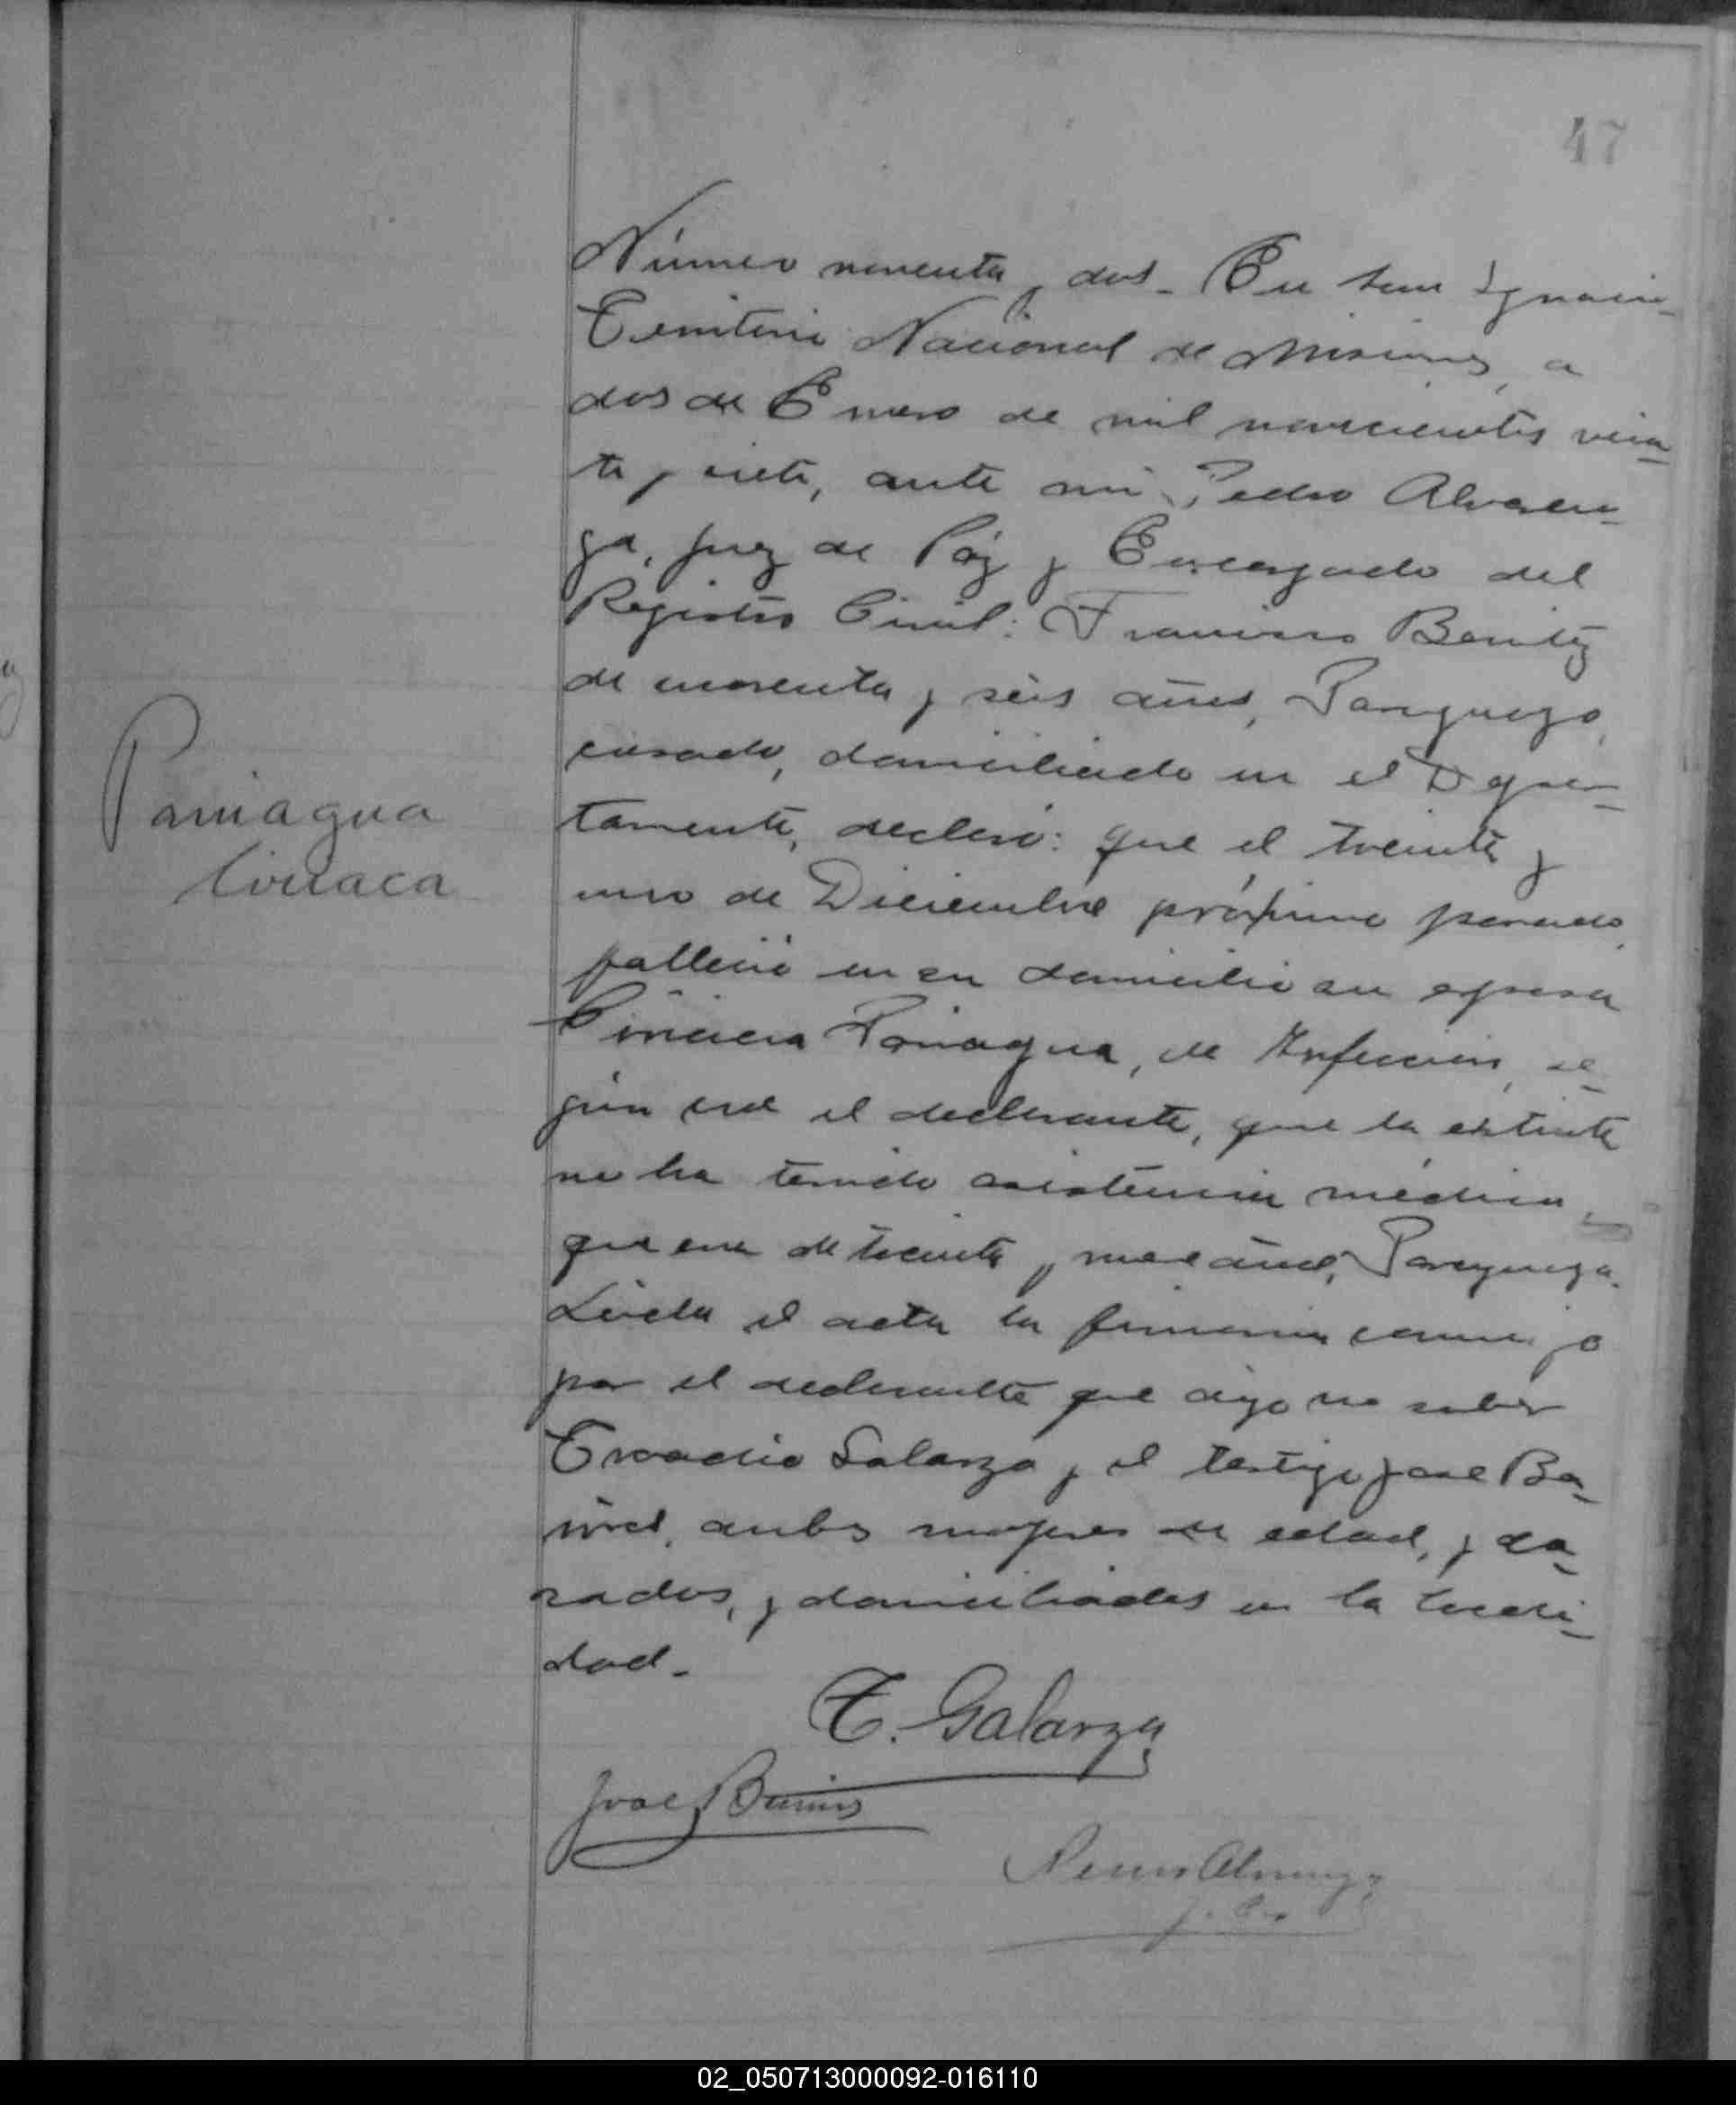 47
Número noventa y dos_ En San Ignacio_
Territorio Nacional de Misiones, a
dos de Enero de mil novecientos vein_
te y siete, ante mi, Pedro Alvaren_
ga, Juez de Páz y Encargado del
Registro Civil: Francisco Benitez
de cuarenta y seis años, Paraguayo,
casado, domiciliado en el Depar_
tamento, declaró: que el treinta y
uno de Diciembre próximo pasado,
falleció en su domicilio su esposa
Ciriaca Paniagua, de Infección, se_
gún cree el declarante, que la extinta
no ha tenido asistencia médica,
que era de treinta y nueve años, Paraguaya.
Leida el acta la firmaron conmigo
por el declarante que dijo no saber
Troadio Galarza y el testigo José Ba_
, ambos mayores de edad, y ca_
sados, y domiciliados en la locali_
dad._
Paniagua
Ciriaca
T. Galarza
José
Alvarenga
02_050713000092-016110